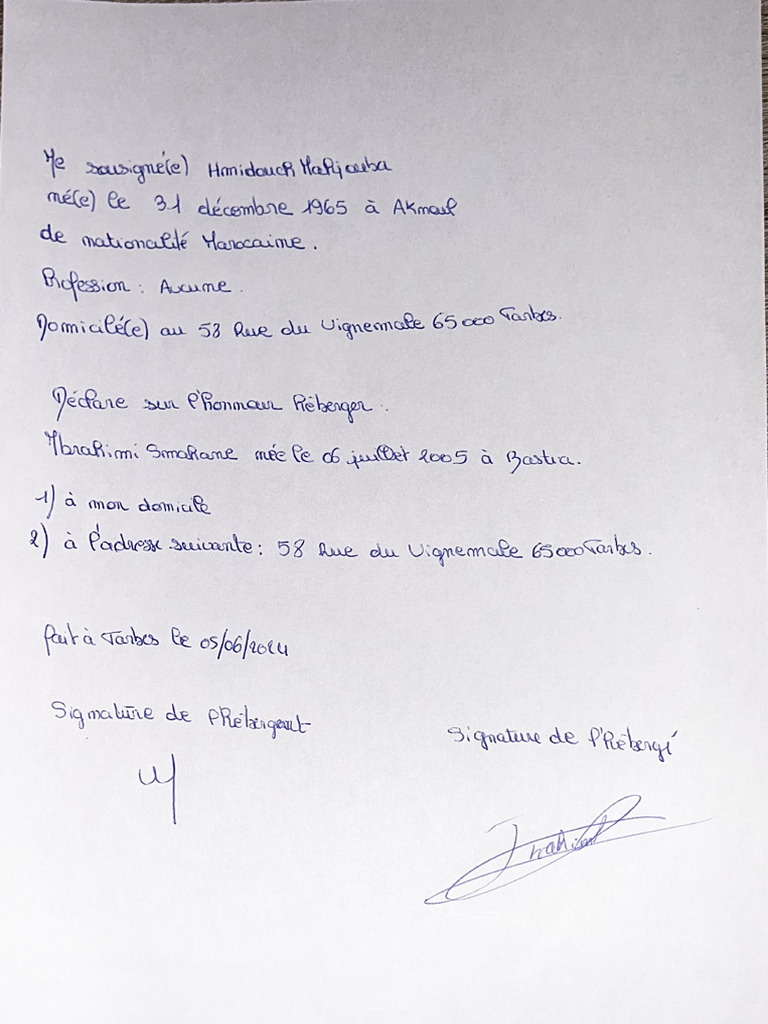 Je sousigné(e) Hmidouch Mahjouba
né(e) le 31 décembre 1965 à Aknoul
de nationalité Marocaine.
Profession : Aucune.
Domicilé(e) au 58 Rue du Vignemale 65000 Tarbes.
Déclare sur l'honneur héberger :
Ibrahimi Smahane née le 06 juillet 2005 à Bastia.
1) à mon domicile
2) à l'adresse suivante : 58 Rue du Vignemale 65000 Tarbes.
fait à Tarbes le 05/06/2024
Signature de l'hébergeant
Signature de l'hébergé